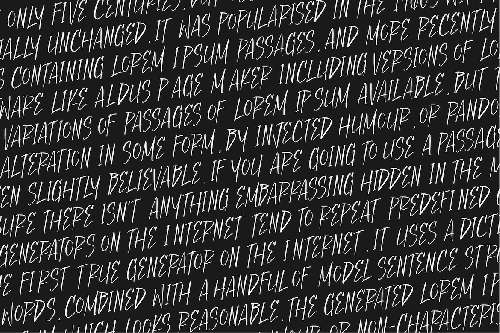 ONLY FIVE CENTURIES, BUT
ALLY UNCHANGED. IT WAS POPULARISED IN THE
CONTAINING LOREM IPSUM PASSAGES, AND MORE RECENTLY
WARE LIKE ALDUS PAGE MAKER INCLUDING VERSIONS OF LO
VARIATIONS OF PASSAGES OF LOREM IPSUM AVAILABLE, BUT
ALTERATION IN SOME FORM, BY INJECTED HUMOUR, OR RANDO
EN SLIGHTLY BELIEVABLE. IF YOU ARE GOING TO USE A PASSAG
URE THERE ISN'T ANYTHING EMBARRASSING HIDDEN IN THE
GENERATORS ON THE INTERNET TEND TO REPEAT PREDEFINED
E FIRST TRUE GENERATOR ON THE INTERNET. IT USES A DICT
WORDS, COMBINED WITH A HANDFUL OF MODEL SENTENCE STR
WHICH LOOKS REASONABLE. THE GENERATED LOREM I
OR NON-CHARACTERI